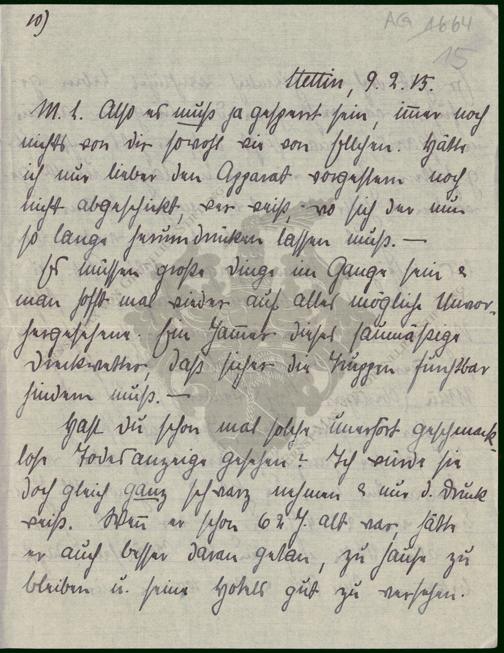 10)
AG 1664
15
Stettin, 9.2.15.
M. L. Also es muß ja gesperrt sein, immer noch
nichts von dir sowohl wie von Ellchen. Hätte
ich nur lieber den Apparat vorgestern noch
nicht abgeschickt, wer weiß, wo sich der nun
so lange herumdrücken lassen muß. —
Es müssen große Dinge im Gange sein &
man hofft mal wieder auf alles mögliche Unvor-
hergesehene. Ein Jammer dieses saumäßige
Dreckwetter, daß sicher die Truppen furchtbar
hindern muß. —
Hast du schon mal solche unerhört geschmack-
lose Todesanzeige gesehen? Ich würde sie
doch gleich ganz schwarz nehmen & nur d. Druck
weiß. Wenn er schon 62 J. alt war, hätte
er auch besser daran getan, zu Hause zu
bleiben u. seine Hotels gut zu versehen.